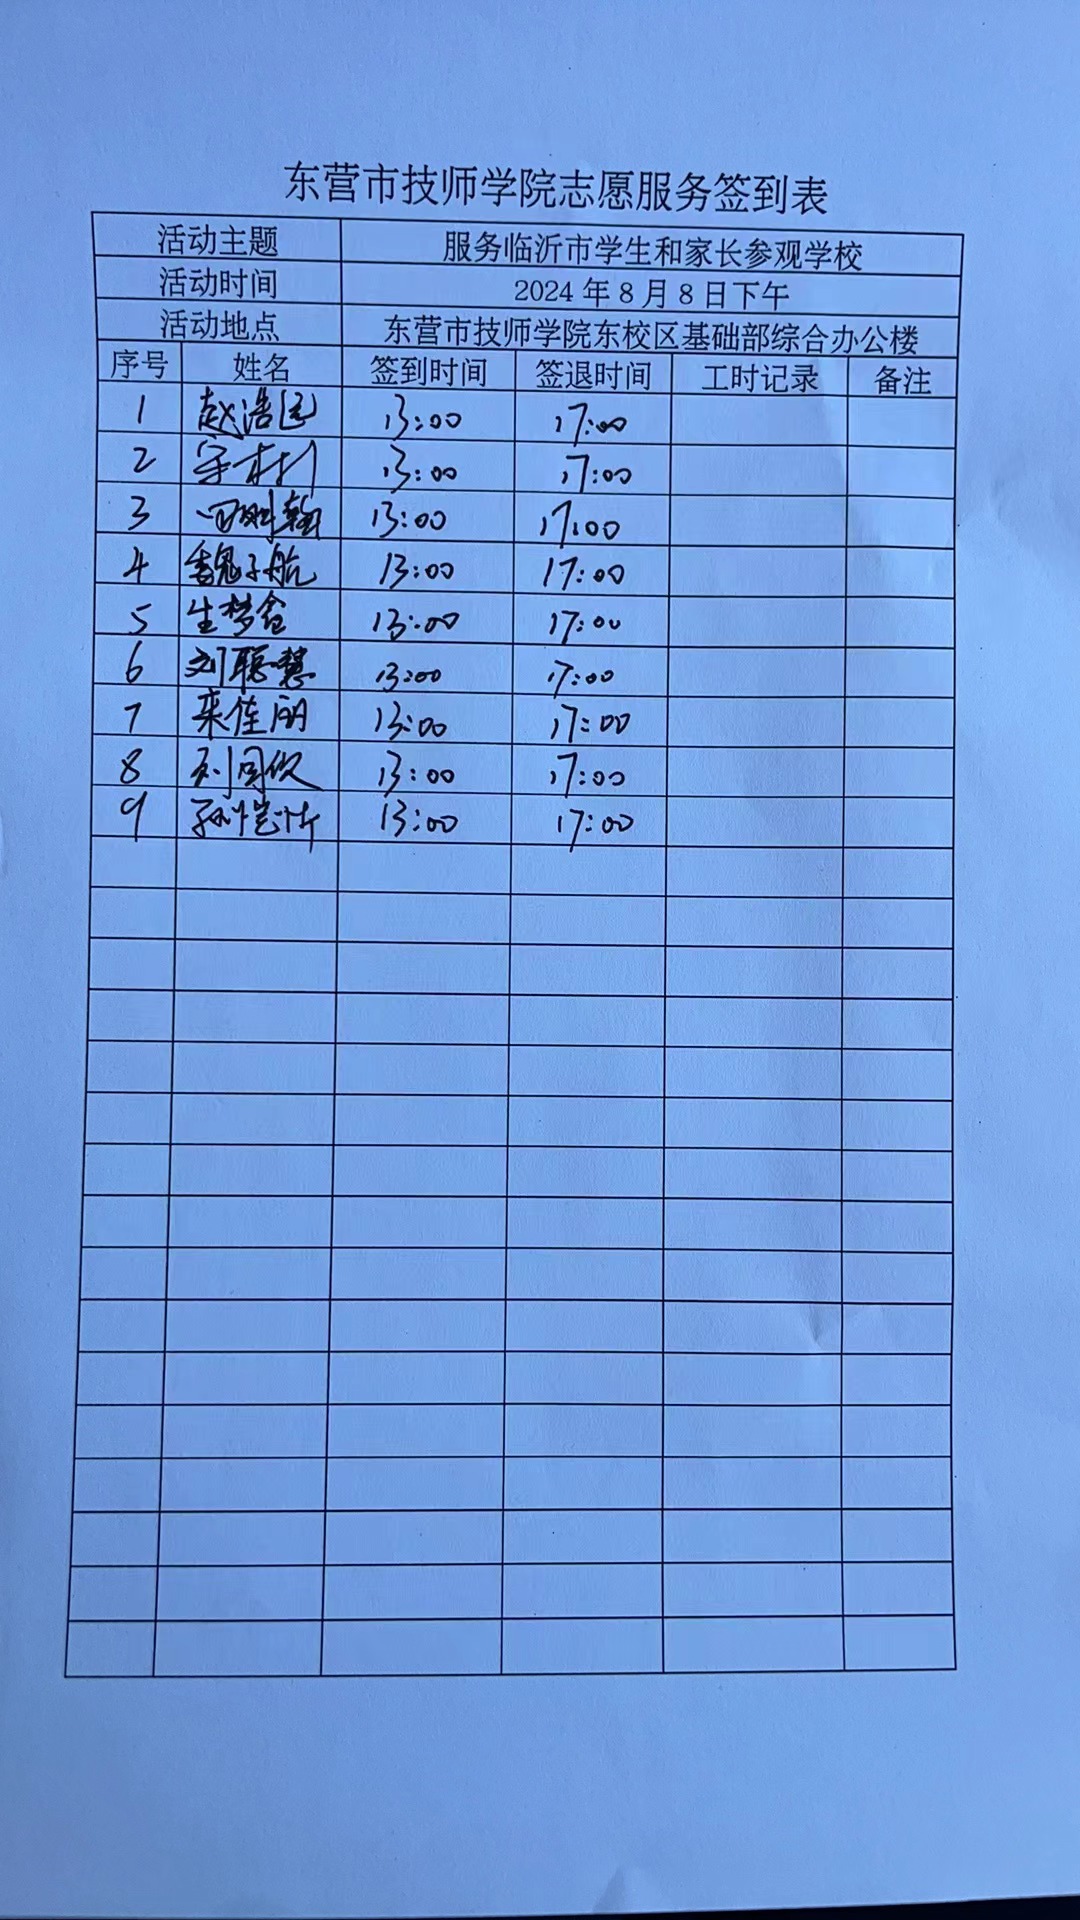 东营市技师学院志愿服务签到表
活动主题 服务临沂市学生和家长参观学校
活动时间 2024年8月8日下午
活动地点 东营市技师学院东校区基础部综合办公楼
序号 姓名 签到时间 签退时间 工时记录 备注
1 赵浩 13:00 17:00
2 13:00 17:00
3 13:00 17:00
4 魏子航 13:00 17:00
5 生梦鑫 13:00 17:00
6 刘聪慧 13:00 17:00
7 来佳朋 13:00 17:00
8 刘同 13:00 17:00
9 孙恺忻 13:00 17:00